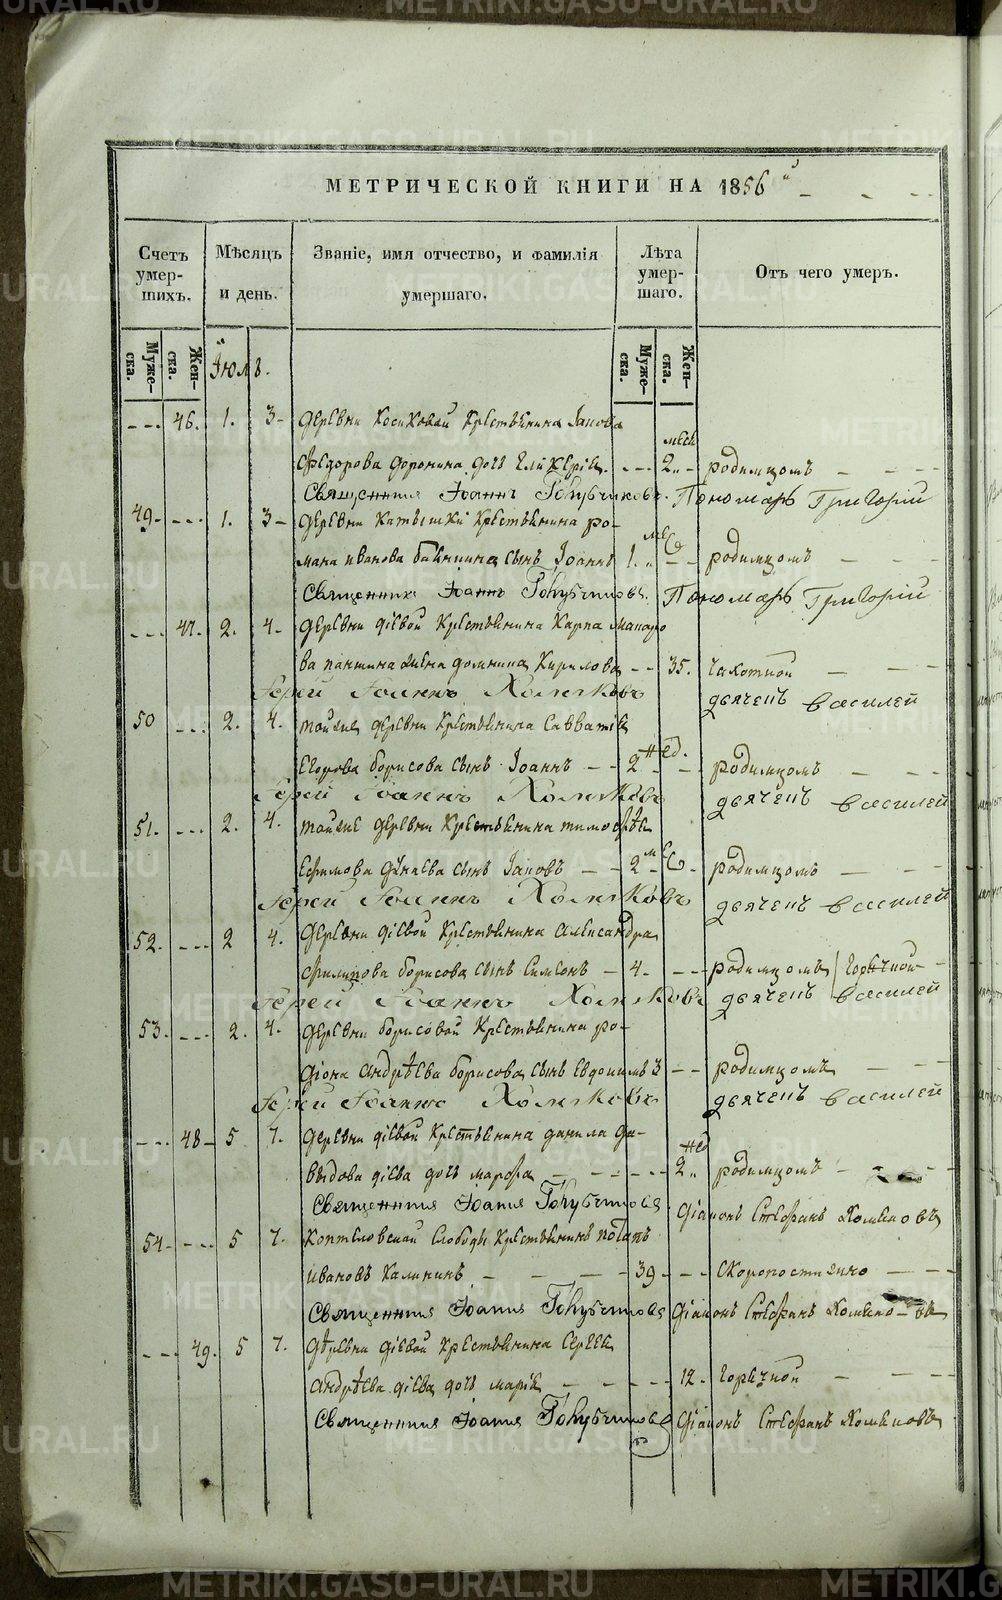 МЕТРИЧЕСКОЙ КНИГИ НА 1856
Счетъ умер-шихъ. Мѣсяцъ и день. Званіе, имя отчество, и фамилія умершаго. Лѣта умер-шаго. Отъ чего умеръ.
Муже-ска. Жен-ска. Муже-ска. Жен-ска.
Іюль.
46. 1. 3 Деревни Косиковой Крестьянина Іакова
Федорова Доронина дочь Гликерія 2 мѣс родимцомъ
Священникъ Іоаннъ Голубчиковъ. Пономарь Григорій
49. 1. 3 Деревни Катышки Крестьянина Ро-
мана Иванова сынъ Іоаннъ 1. мѣс родимцомъ
Священникъ Іоаннъ Голубчиковъ. Пономарь Григорій
47. 2. 4. Деревни Діевой Крестьянина Карпа Макаро
ва Паншина жена Домника Кирилова 35. Чахоткой
Іерей Іоаннъ Холмяковъ дьячекъ Василей
50 2. 4. Тойже деревни Крестьянина Савватія
Егорова Борисова сынъ Іоаннъ 2 нед. родимцомъ
Іерей Іоаннъ Холмяковъ дьячекъ Василей
51. 2. 4. Тойже деревни Крестьянина Тимофѣя
Ефимова сынъ Іаковъ 2 мѣс родимцомъ
Іерей Іоаннъ Холмяковъ дьячекъ Василей
52. 2 4. Деревни Діевой Крестьянина Александра
Филипова Борисова сынъ Симеонъ 4. родимцомъ Горячкой
Іерей Іоаннъ Холмяковъ дьячекъ Василей
53. 2. 4. Деревни Борисовой Крестьянина Ро-
діона Андрѣева Борисова сынъ Евдокимъ 3 родимцомъ
Іерей Іоаннъ Холмяковъ дьячекъ Василей
48 5 7. Деревни Діевой Крестьянина Данила Да-
выдова Діева дочь Марфа 2 нед родимцомъ
Священникъ Іоаннъ Голубчиковъ Діаконъ Стефанъ Хомяковъ
54. 5 7. Коптеловской Слободы Крестьянинъ Потапъ
Ивановъ Калининъ 39 Скоропостижно
Священникъ Іоаннъ Голубчиковъ Діаконъ Стефанъ Хомяковъ
49. 5 7. Деревни Діевой Крестьянина Сергея
Андрѣева Діева дочь Марія 12. Горячкой
Священникъ Іоаннъ Голубчиковъ Діаконъ Стефанъ Хомяковъ
METRIKI.GASO-URAL.RU